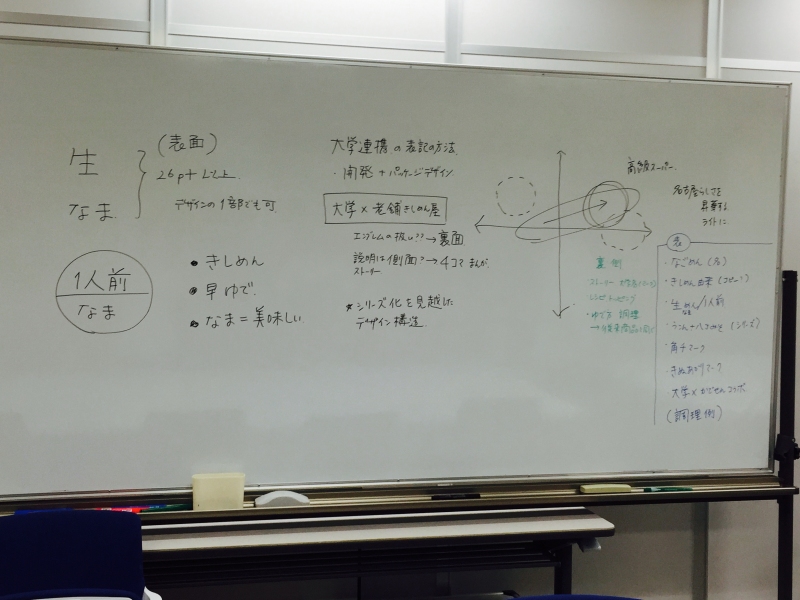 生
なま
(表面)
26pt以上
デザインの1部でも可
1人前
なま
・きしめん
・早ゆで
・なま=美味しい
大学連携の表記の方法
・開発+パッケージデザイン
大学×老舗きしめん屋
エンブレムの扱い??→裏面
説明は側面?→4コマまんが
ストーリー
★シリーズ化を見越した
デザイン構造
高級スーパー
名古屋らしさを
ライトに
裏 側
ストーリー
レシピ トッピング
・ゆで方 調理
表
・なごめん(名)
・きしめん
・生めん/1人前
なま
・きぬあかりマーク
大学×
コラボ
(調理例)